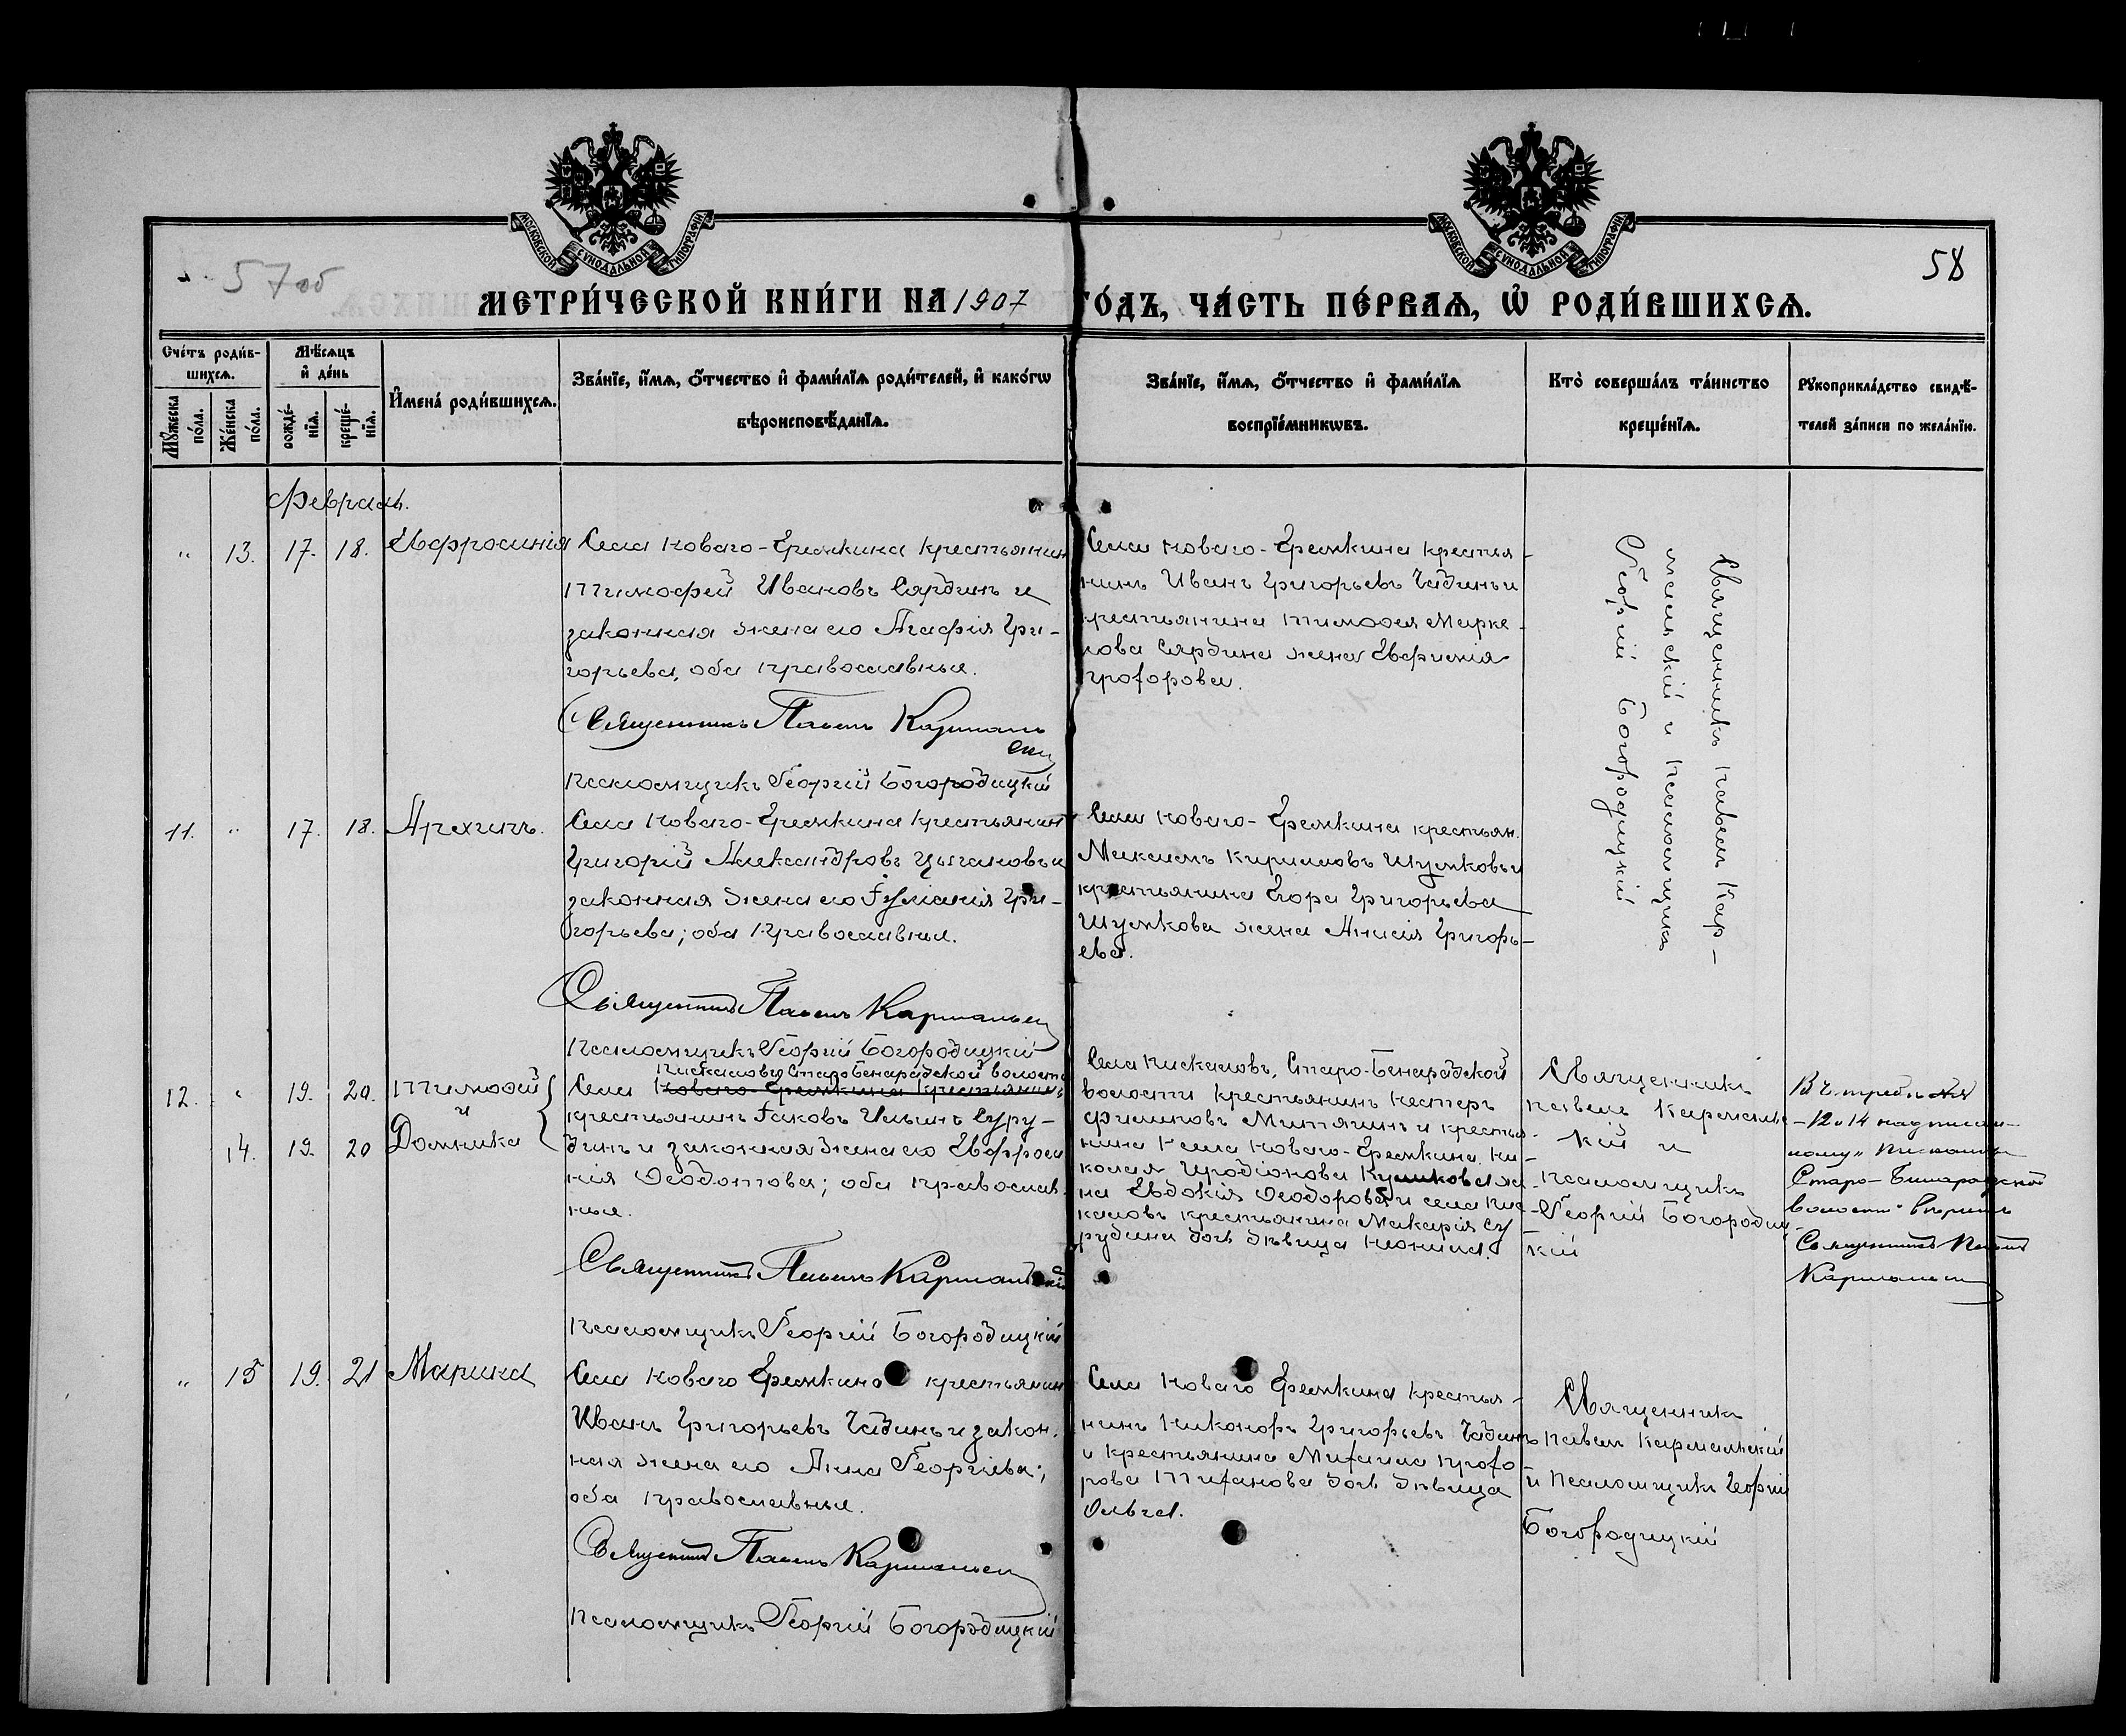 57 об
58
МОСКОВСКОЙ СѴНОДАЛЬНОЙ ТИПОГРАФІИ
МОСКОВСКОЙ СѴНОДАЛЬНОЙ ТИПОГРАФІИ
МЕТРИ́ЧЕСКОЙ КНИ́ГИ НА 1907 ГО́ДЪ, ЧА́СТЬ ПЕ́РВАѦ, Ѡ҆ РОДИ́ВШИХСѦ.
Сче́тъ роди́в-
шихсѧ.
Мꙋ́жеска
по́ла.
Же́нска
по́ла.
Мѣ́сѧцъ
и҆ де́нь
рожде́-
нїѧ.
креще́-
нїѧ.
И҆мена̀ роди́вшихсѧ.
Зва́нїе, и҆́мѧ, ѻ҆́тчество и҆ фами́лїѧ роди́телей, и҆ како́гѡ
вѣроисповѣ́данїѧ.
Зва́нїе, и҆́мѧ, ѻ҆́тчество и҆ фами́лїѧ
воспрїе́мникѡвъ.
Кто̀ соверша́лъ та́инство
креще́нїѧ.
Рꙋкоприкла́дство свидѣ́-
телей за́писи по жела́нїю.
Февраль.
" 13. 17. 18. Евфросинія
Села Новаго-Еремкина крестьянин
Тимофей Ивановъ Сардинъ и
законная жена его Агафія Гри-
горьева, оба православные.
Священникъ Павелъ Кармаль
ский
Псаломщикъ Георгій Богородицкій
Села Новаго-Еремкина крестья-
нинъ Иванъ Григорьевъ Чадинъ и
крестьянина Тимоѳея Марке-
лова Сардина жена Евфимія
Прохорова.
Священникъ Павелъ Кар-
мальскій и псаломщикъ
Георгій Богородицкій
11. " 17. 18. Архипъ.
Села Новаго-Еремкина крестьянинъ
Григорій Александровъ Цыгановъ и
законная жена его Іуліанія Гри-
горьева; оба православные.
Священникъ Павелъ Кармальский
Псаломщикъ Георгій Богородицкій
Села Новаго-Еремкина крестьян.
Максимъ Кирилловъ Шумковъ и
крестьянина Егора Григорьева
Шумкова жена Анисія Григорь-
ева.
12. " 19. 20. Тимоѳей
и
14. 19. 20 Домника
Пискаловъ Старо-Бинарадской волости
Села Новаго-Еремкина крестьянинъ
крестьянинъ Іаковъ Ильинъ Суру-
динъ и законная жена его Евфроси
нія Ѳеодотова; оба православ-
ные.
Священникъ Павелъ Кармальскій
Псаломщикъ Георгій Богородицкій
Села Пискаловъ, Старо-Бинарадской
волости крестьянинъ Нестеръ
Филиповъ Митягинъ и крестья-
нина села Новаго-Еремкина Ни-
колая Иродіонова Кушкова же
на Евдокія Ѳеодорова и села Пис-
каловъ крестьянина Макарія Су
рудина дочь дѣвица Неонила.
Священникъ
Павелъ Кармальс-
кій и
псаломщикъ
Георгій Богородиц-
кій
12 и 14 надписан-
ному
Старо-Бинарадской
волости вѣрить
Священникъ Павелъ
Кармальский
" 15 19. 21 Марина
Села Новаго Еремкина крестьянин
Иванъ Григорьевъ Чадинъ и закон.
ная жена его Анна Георгіева;
оба православные.
Священникъ Павелъ Кармальский
Псаломщикъ Георгій Богородицкій
Села Новаго Еремкина крестья-
нинъ Никоноръ Григорьевъ Чадинъ
и крестьянина Михаила Прохо
рова Тифанова дочь дѣвица
Ольга.
Священникъ
Павелъ Кармальскій
и Псаломщикъ Георгій
Богородицкій